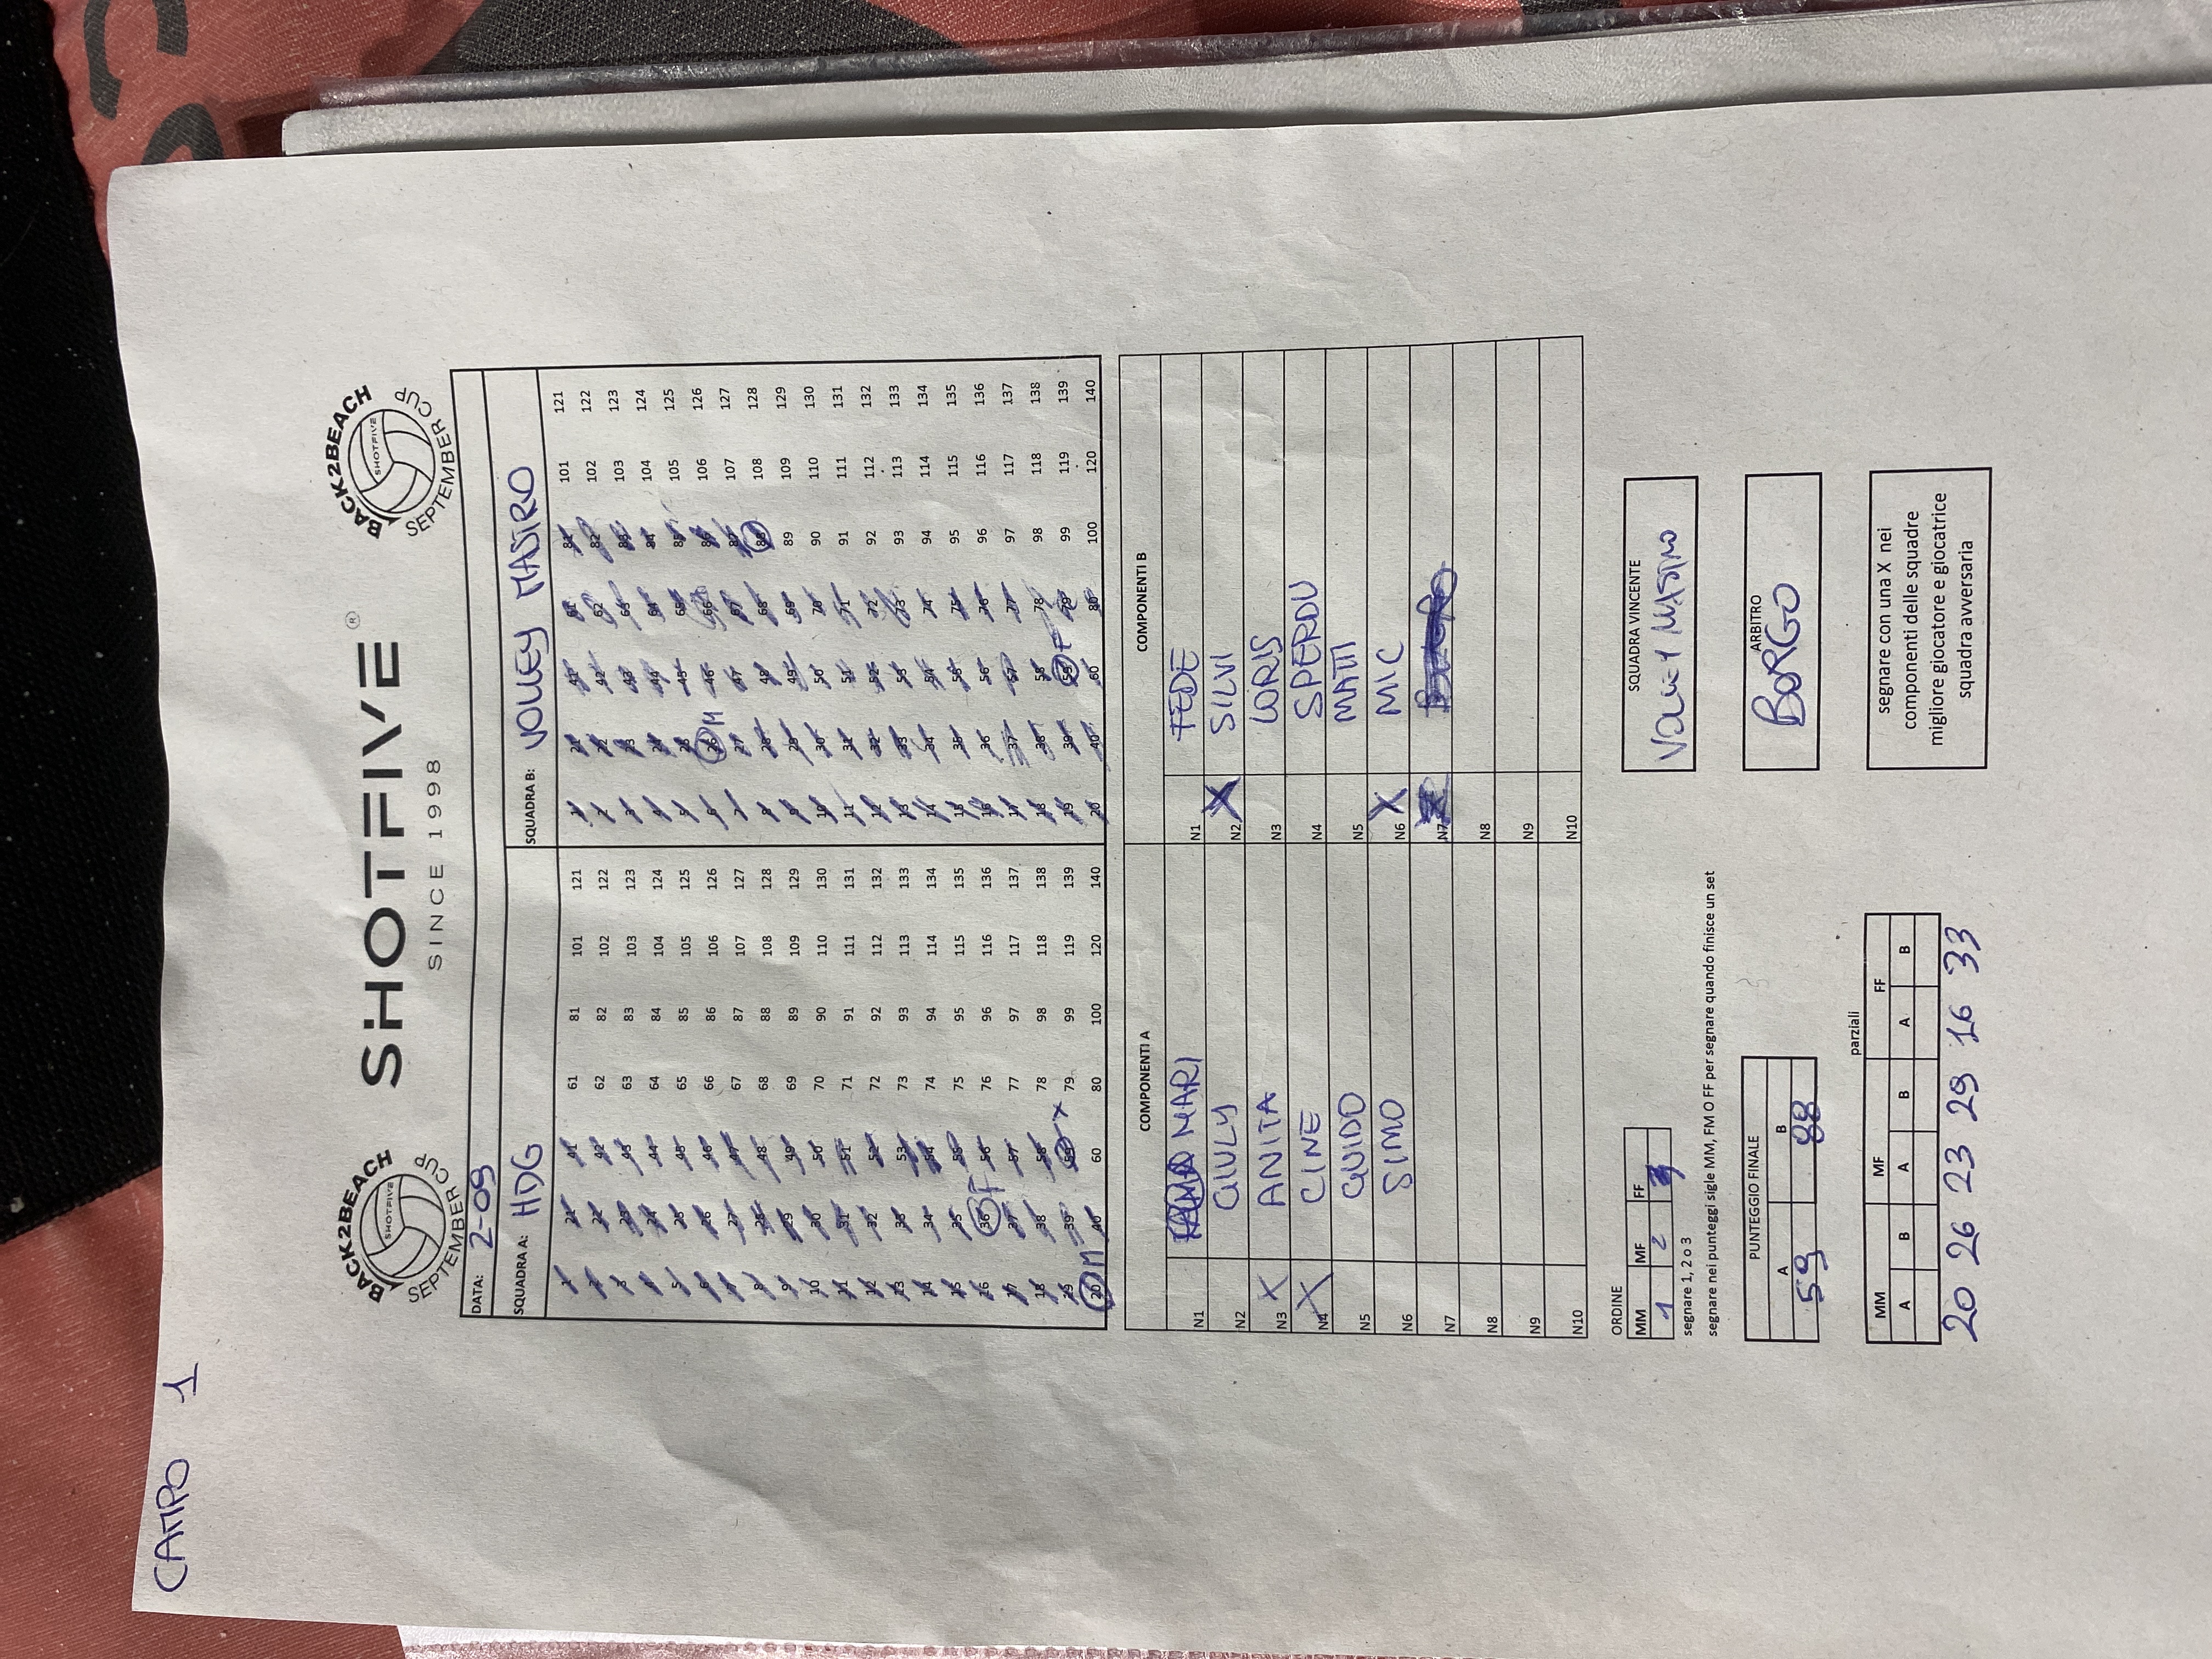 CAMPO 1
BACK2BEACH
SHOTFIVE
SEPTEMBER CUP
SHOTFIVE®
SINCE 1998
BACK2BEACH
SHOTFIVE
SEPTEMBER CUP
DATA: 2-09
SQUADRA A: HDG SQUADRA B: VOLLEY MASTRO
1 21 41 61 81 101 121 1 21 41 61 81 101 121
2 22 42 62 82 102 122 2 22 42 62 82 102 122
3 23 43 63 83 103 123 3 23 43 63 83 103 123
4 24 44 64 84 104 124 4 24 44 64 84 104 124
5 25 45 65 85 105 125 5 25 45 65 85 105 125
6 26 46 66 86 106 126 6 26 M 46 66 86 106 126
7 27 47 67 87 107 127 7 27 47 67 87 107 127
8 28 48 68 88 108 128 8 28 48 68 88 108 128
9 29 49 69 89 109 129 9 29 49 69 89 109 129
10 30 50 70 90 110 130 10 30 50 70 90 110 130
11 31 51 71 91 111 131 11 31 51 71 91 111 131
12 32 52 72 92 112 132 12 32 52 72 92 112 132
13 33 53 73 93 113 133 13 33 53 73 93 113 133
14 34 54 74 94 114 134 14 34 54 74 94 114 134
15 35 55 75 95 115 135 15 35 55 75 95 115 135
16 36 F 56 76 96 116 136 16 36 56 76 96 116 136
17 37 57 77 97 117 137 17 37 57 77 97 117 137
18 38 58 78 98 118 138 18 38 58 78 98 118 138
19 39 59 X 79 99 119 139 19 39 59 F 79 99 119 139
20 M 40 60 80 100 120 140 20 40 60 80 100 120 140
COMPONENTI A COMPONENTI B
N1 MARI N1 FEDE
N2 GIULY N2 X SILVI
N3 X ANITA N3 LORIS
N4 X CINE N4 SPERDU
N5 GUIDO N5 MATTI
N6 SIMO N6 X MIC
N7 N7
N8 N8
N9 N9
N10 N10
ORDINE
MM MF FF
1 2 3
segnare 1, 2 o 3
segnare nei punteggi sigle MM, FM O FF per segnare quando finisce un set
SQUADRA VINCENTE
VOLLEY MASTRO
PUNTEGGIO FINALE
A B
59 88
ARBITRO
BORGO
parziali
MM MF FF
A B A B A B
20 26 23 29 16 33
segnare con una X nei
componenti delle squadre
migliore giocatore e giocatrice
squadra avversaria